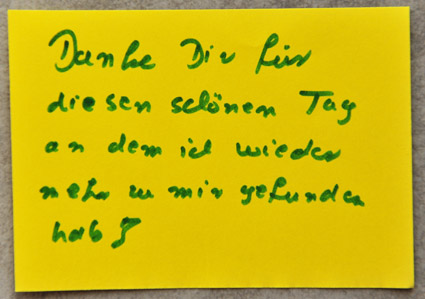 Danke Dir für
diesen schönen Tag
an dem ich wieder
mehr zu mir gefunden
hab